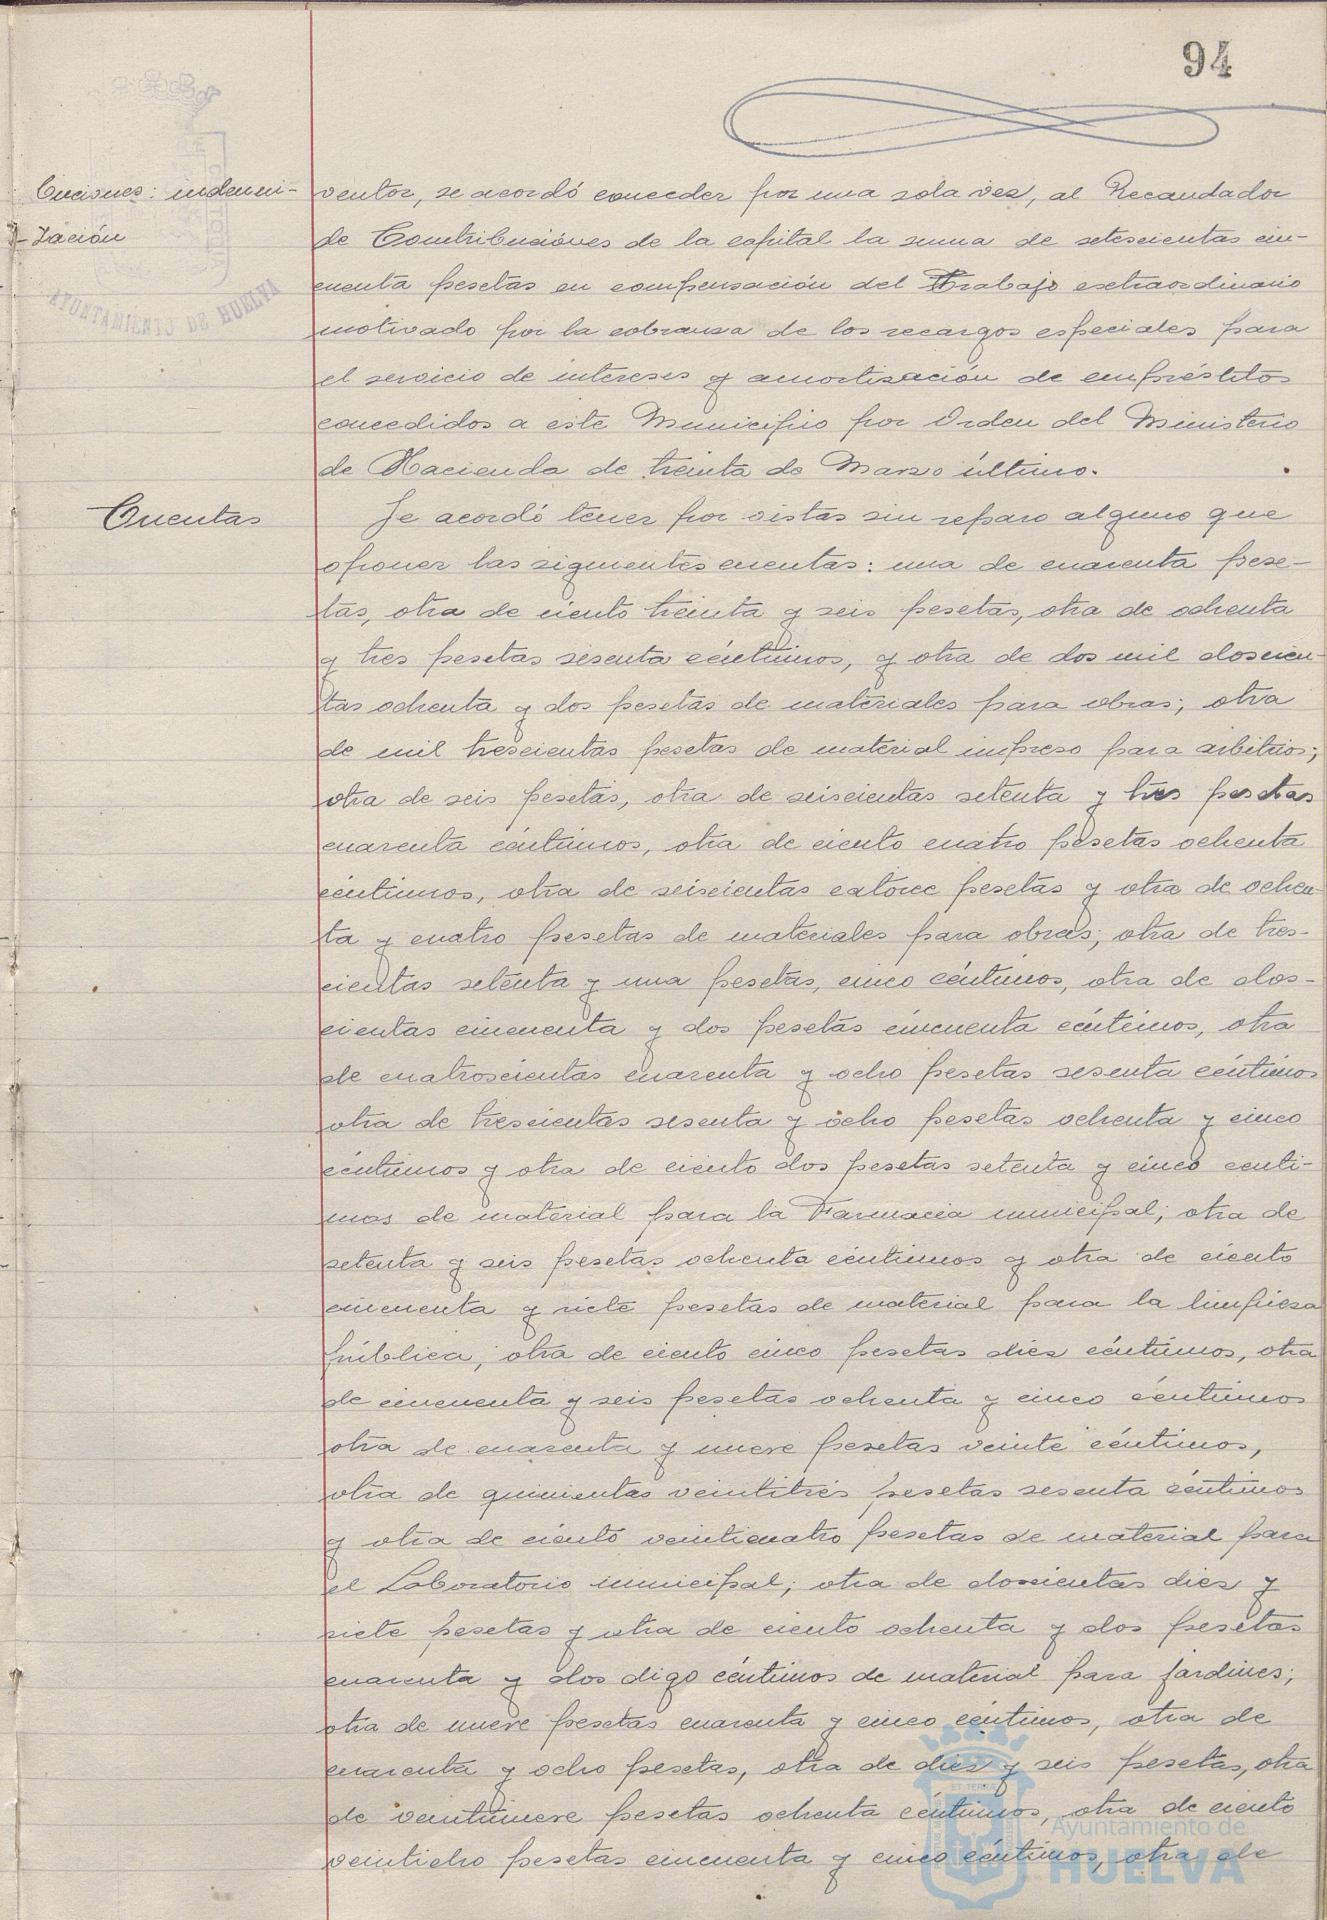 94
AYUNTAMIENTO DE HUELVA
Cuciones: indemni-
-zación
ventor, se acordó conceder por una sola vez, al Recaudador
de Contribuciónes de la capital la suma de setescientas cin-
cuenta pesetas en compensación del Trabajo extraordinario
motivado por la cobranza de los recargos especiales para
el servicio de intereses y amortización de empréstitos
concedidos a este Municipio por Orden del Ministerio
de Hacienda de treinta de Marzo último.
Cuentas
Se acordó tener por vistas sin reparo alguno que
oponer las siguientes cuentas: una de cuarenta pese-
tas, otra de ciento treinta y seis pesetas, otra de ochenta
y tres pesetas sesenta céntimos, y otra de dos mil doscien-
tas ochenta y dos pesetas de materiales para obras; otra
de mil trescientas pesetas de material impreso para arbitrios;
otra de seis pesetas, otra de seiscientas setenta y tres pesetas
cuarenta céntimos, otra de ciento cuatro pesetas ochenta
céntimos, otra de seiscientas catorce pesetas y otra de ochen-
ta y cuatro pesetas de materiales para obras; otra de tres-
cientas setenta y una pesetas, cinco céntimos, otra de dos-
cientas cincuenta y dos pesetas cincuenta céntimos, otra
de cuatroscientas cuarenta y ocho pesetas sesenta céntimos
otra de trescientas sesenta y ocho pesetas ochenta y cinco
céntimos y otra de ciento dos pesetas setenta y cinco centi-
mos de material para la Farmacia municipal; otra de
setenta y seis pesetas ochenta céntimos y otra de ciento
cincuenta y siete pesetas de material para la limpieza
pública; otra de ciento cinco pesetas diez céntimos, otra
de cincuenta y seis pesetas ochenta y cinco céntimos
otra de cuarenta y nueve pesetas veinte céntimos,
otra de quinientas veintitrés pesetas sesenta céntimos
y otra de ciento veinticuatro pesetas de material para
el Laboratorio municipal; otra de doscientas diez y
siete pesetas y otra de ciento ochenta y dos pesetas
cuarenta y dos digo céntimos de material para jardines;
otra de nueve pesetas cuarenta y cinco céntimos, otra de
cuarenta y ocho pesetas, otra de diez y seis pesetas, otra
de veintinueve pesetas ochenta céntimos, otra de ciento
veintiocho pesetas cincuenta y cinco céntimos, otra de
Ayuntamiento de
HUELVA